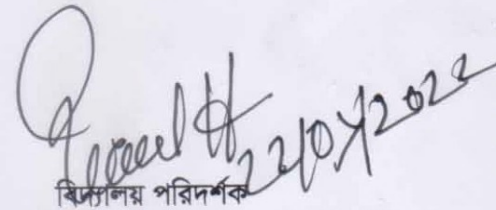 22/07/2022
বিদ্যালয় পরিদর্শক